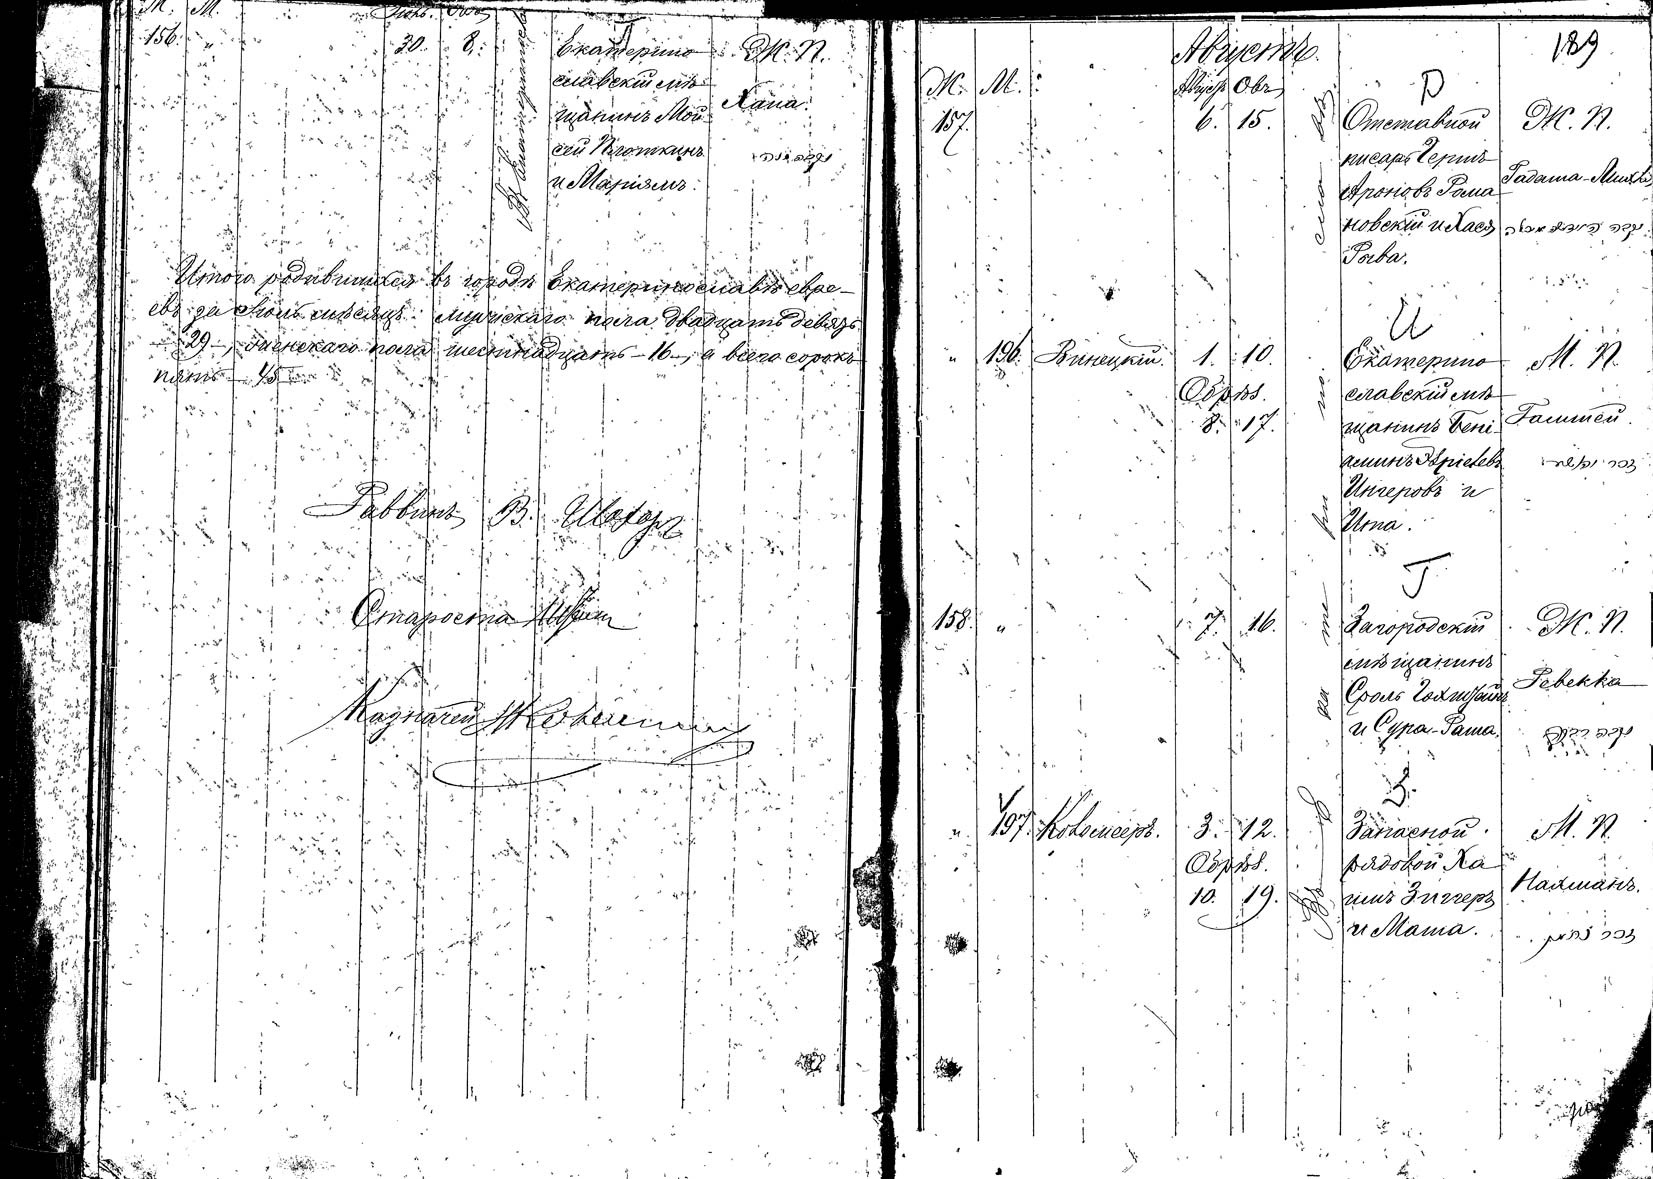 Ж. М. Іюль. Овъ
156. " 30. 8. Въ Екатеринославѣ
Екатерино
славскій мѣ
щанинъ Мой
сей Плоткинъ
и Маріямъ.
Ж. П.
Хана.
נקבה חנה
Итого родившихся въ городѣ Екатеринославѣ евре-
евъ за Іюль мѣсяцъ: мужскаго пола двадцать девять
- 29 -, женскаго пола шестнадцать - 16 -, а всего сорокъ
пять - 45 -
Раввинъ В. Шахоръ
Староста
Казначей
189
Августъ.
Ж. М. Август Овъ
157. 6. 15.
Р
Отставной
писарь Гершъ
Ароновъ Рома
новскій и Хася
Рыва.
Ж. П.
Гадаса-Михля
И
" 196. Винецкій. 1. 10.
Обрѣз.
8. 17.
Екатерино
славскій мѣ
щанинъ Бені-
аминъ
Ингеровъ и
Ита.
М. П.
זכר
Г
158. " 7. 16.
Загородскій
мѣщанинъ
Сроль
и Сура-Раша.
Ж. П.
Ревекка
נקבה רבקה
З.
" 197. Коломееръ. 3. 12.
Обрѣз.
10. 19.
Запасной
рядовой Ха
имъ Зигеръ
и Маша.
М. П.
Нахманъ.
זכר נחמן
Въ Екатеринославѣ